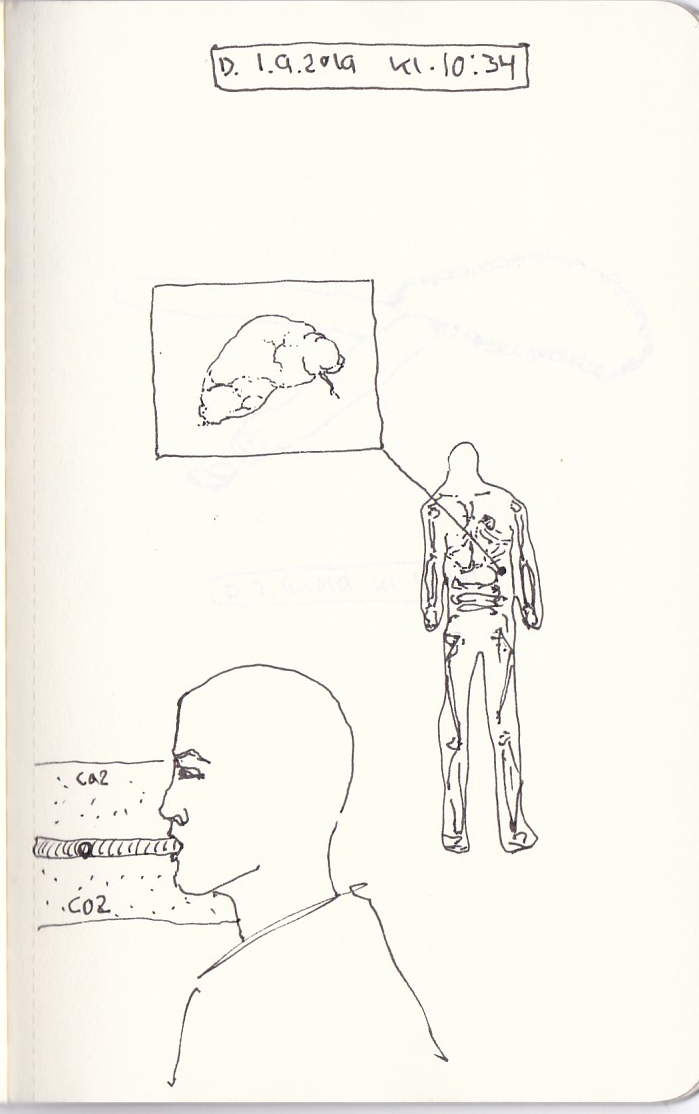 D. 1.9.2019 Kl. 10:34
CO2
CO2